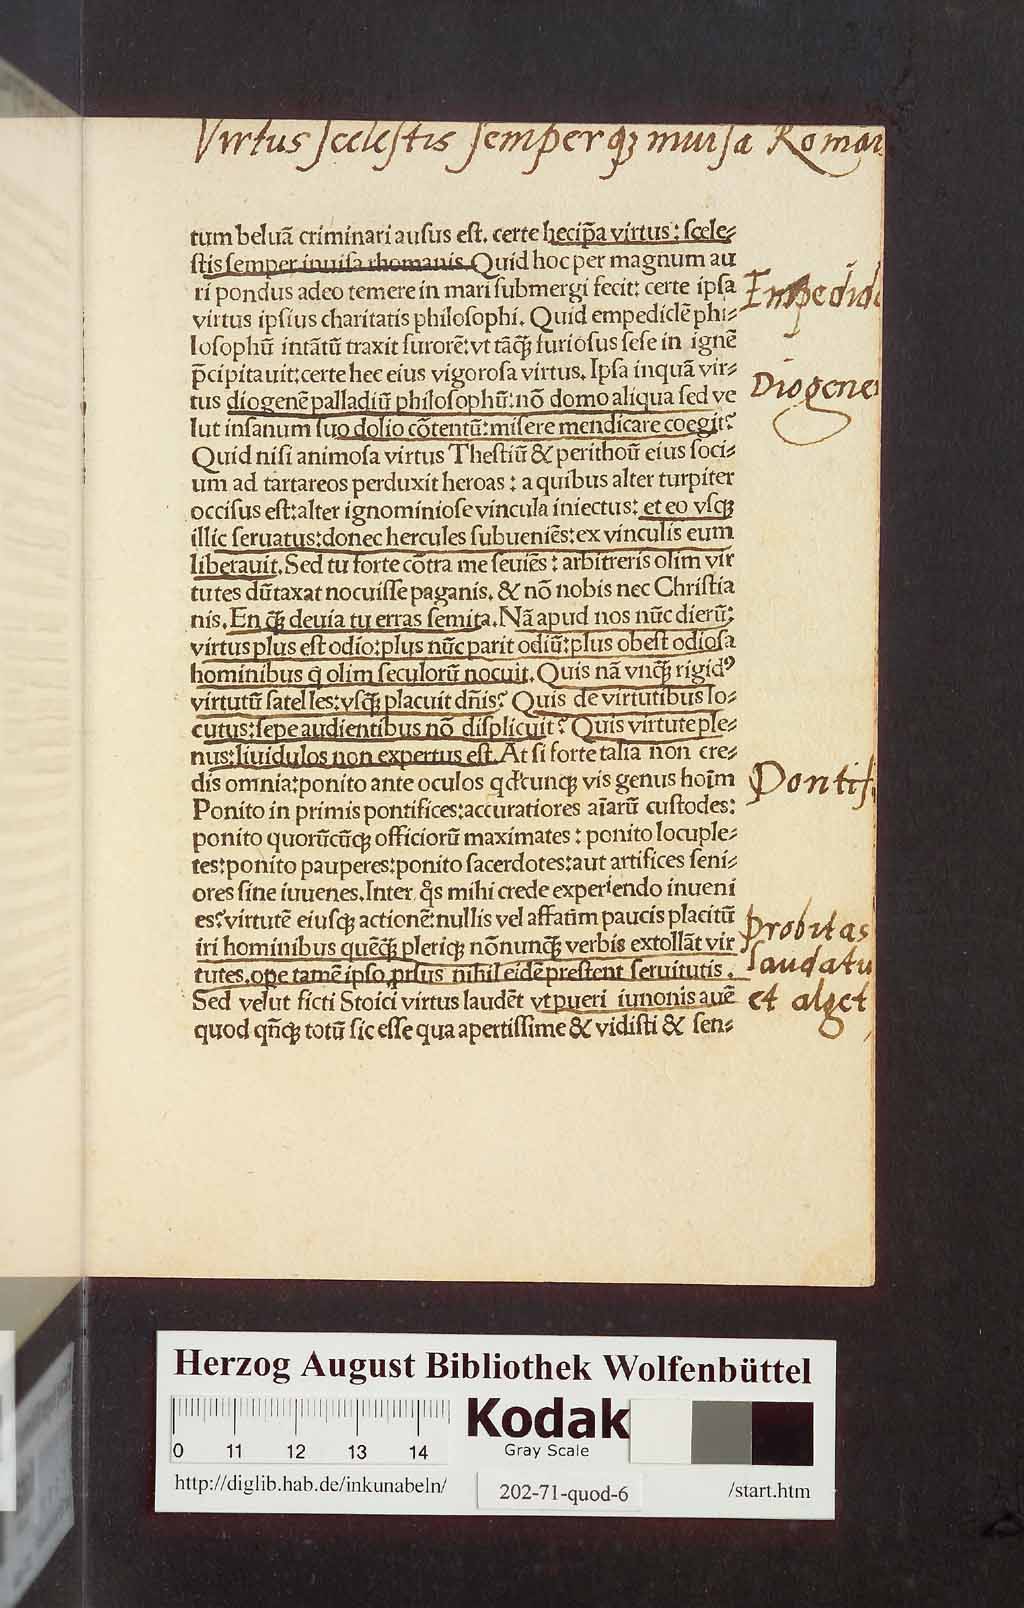 Virtus scelestis semperq̃ȝ inuisa Roman
tum beluā criminari ausus est. certe hecip̄a virtus: scele⸗
stis semper inuisa rhomanis. Quid hoc per magnum au
ri pondus adeo temere in mari submergi fecit: certe ipsa
virtus ipsius charitatis philosophi. Quid empediclē phi⸗
losophū intātū traxit furorē: vt tāq̃ȝ furiosus sese in ignē
p̄cipitauit: certe hec eius vigorosa virtus. Ipsa inquā vir⸗
tus diogenē palladiū philosophū: nō domo aliqua sed ve
lut insanum suo dolio cōtentū: misere mendicare coegit?
Quid nisi animosa virtus Thestiū & perithoū eius soci⸗
um ad tartareos perduxit heroas: a quibus alter turpiter
occisus est: alter ignominiose vincula iniectus: et eo vsq̃ȝ
illic seruatus: donec hercules subueniēs: ex vinculis eum
liberauit. Sed tu forte cōtra me seuiēs: arbitreris olim vir
tutes dūtaxat nocuisse paganis. & nō nobis nec Christia
nis. En q̃ȝ deuia tu erras semita. Nā apud nos nūc dierū:
virtus plus est odio: plus nūc parit odiū: plus obest odiosa
hominibus q̄ olim seculorū nocuit. Quis nā vnq̃ȝ rigidꝰ
virtutū satelles: vsq̃ȝ placuit dn̄is? Quis de virtutibus lo⸗
cutus: sepe audientibus nō displicuit? Quis virtute ple⸗
nus: liuidulos non expertus est. At si forte talia non cre⸗
dis omnia: ponito ante oculos qd'cunqȝ vis genus hoīm
Ponito in primis pontifices: accuratiores aīarū custodes:
ponito quorūcūqȝ officiorū maximates: ponito locuple⸗
tes: ponito pauperes: ponito sacerdotes: aut artifices seni⸗
ores sine iuuenes. Inter q̄s mihi crede experiendo inueni
es? virtutē eiusqȝ actionē: nullis vel affatim paucis placitū
iri hominibus quēq̃ȝ pleriqȝ nōnunq̃ȝ verbis extollāt vir
tutes. ope tamē ipso prsus nihil eidē prestent seruitutis.
Sed velut ficti Stoici virtus laudēt vt pueri iunonis auē
quod qn̄qȝ totū sic esse qua apertissime & vidisti & sen⸗
Empedicl
Diogenes
Pontif
Probitas
laudatu
et alget
Herzog August Bibliothek Wolfenbüttel
0 11 12 13 14
Kodak
Gray Scale
http://diglib.hab.de/inkunabeln/
202-71-quod-6
/start.htm